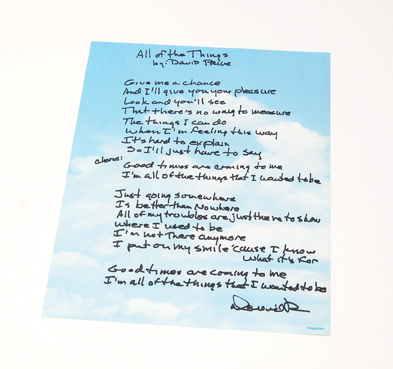 All of the Things
by: David Price
Give me a chance
And I'll give you your pleasure
Look and you'll see
That there's no way to measure
The things I can do
When I'm feeling this way
It's hard to explain
So I'll just have to say
chorus:
Good times are coming to me
I'm all of the things that I wanted to be
Just going somewhere
Is better than Nowhere
All of my troubles are just there to show
Where I used to be
I'm not There anymore
I put on my smile 'cause I know
what it's for
Good times are coming to me
I'm all of the things that I wanted to be